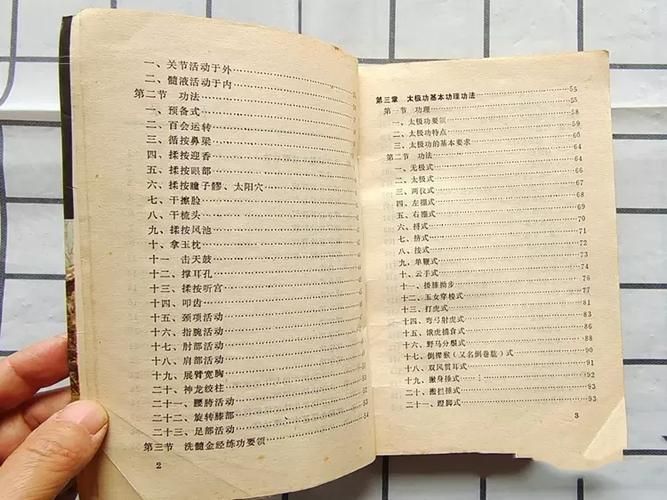 一、关节活动于外
二、髓液活动于内
第二节 功法
一、预备式
二、百会运转
三、循按鼻梁
四、揉按迎香
五、揉按眼部
六、揉按瞳子髎、太阳穴
七、干擦脸
八、干梳头
九、揉按风池
十、拿玉枕
十一 击天鼓
十二、撑耳孔
十三、揉按听宫
十四、叩齿
十五、颈项活动
十六、指腕活动
十七、肘部活动
十八、肩部活动
十九、展臂宽胸
二十、神龙绞柱
二十一、腰胯活动
二十二、旋转膝部
二十三、足部活动
第三节 洗髓金经练功要领
2
第三章 太极功基本功理功法 55
第一节 功理 55
一、太极功要领 58
二、太极功特点 59
三、太极功的基本要求 60
第二节 功法 64
一、无极式 64
二、太极式 66
三、两仪式 67
四、左掤式 68
五、右掤式 69
六、捋式 70
七、挤式 71
八、按式 72
九、单鞭式 73
十、云手式 74
十一、搂膝拗步 76
十二、玉女穿梭式 77
十三、打虎式 81
十四、弯弓射虎式 83
十五、饿虎捕食式 86
十六、野马分鬃式 88
十七、倒撵猴（又名倒卷肱）式 90
十八、双风贯耳式 91
十九、撇身捶式 92
二十、搬拦捶式 93
二十一、蹬脚式 93
3